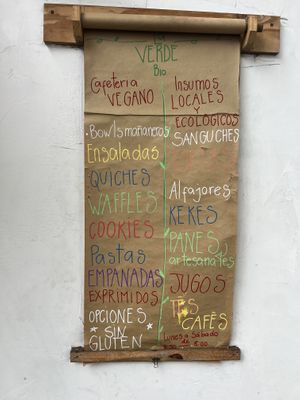 VERDE
Bio
Cafeteria
VEGANO
• Bowls mañaneros
Ensaladas
QUICHES
WAFFLES
COOKIES
Pastas
EMPANADAS
EXPRIMIDOS
OPCIONES
SIN
GLUTEN
Insumos
LOCALES
Y
ECOLÓGICOS
SANGUCHES
Alfajores
KEKES
PANES
artesanales
JUGOS
TÉS
CAFÉS
Lunes a Sábado